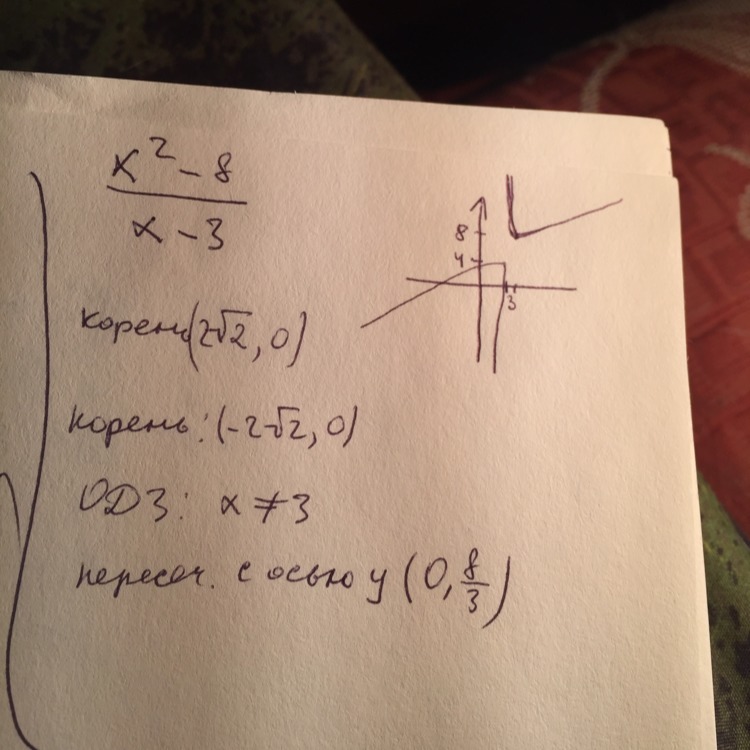 x² - 8
x - 3
8
4
3
корень(2√2, 0)
корень: (-2√2, 0)
ОДЗ: x ≠ 3
пересеч. с осью y (0, 8/3)